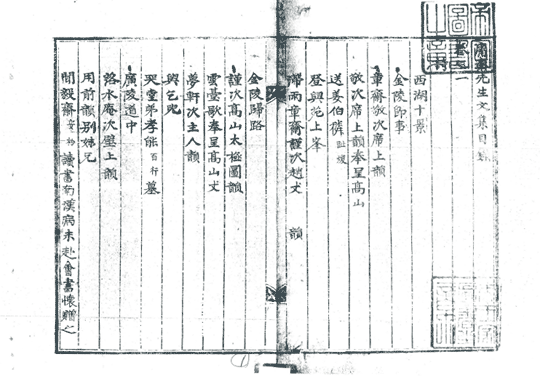 先生文集目
一
西湖十景
金陵即事
章齋敬次席上韻
敬次席上韻奉呈高山
送姜伯
登興 上峯
雨章齋謹次趙丈 韻
金陵歸路
謹次高山太極圖韻
雲臺歌奉呈高山丈
夢軒次主人韻
與乞兒
哭堂弟孝能百行墓
廣陵道中
落水庵次壁上韻
用前韻別姊兄
聞毅齋 讀書南漢病未赴會書懷贈之